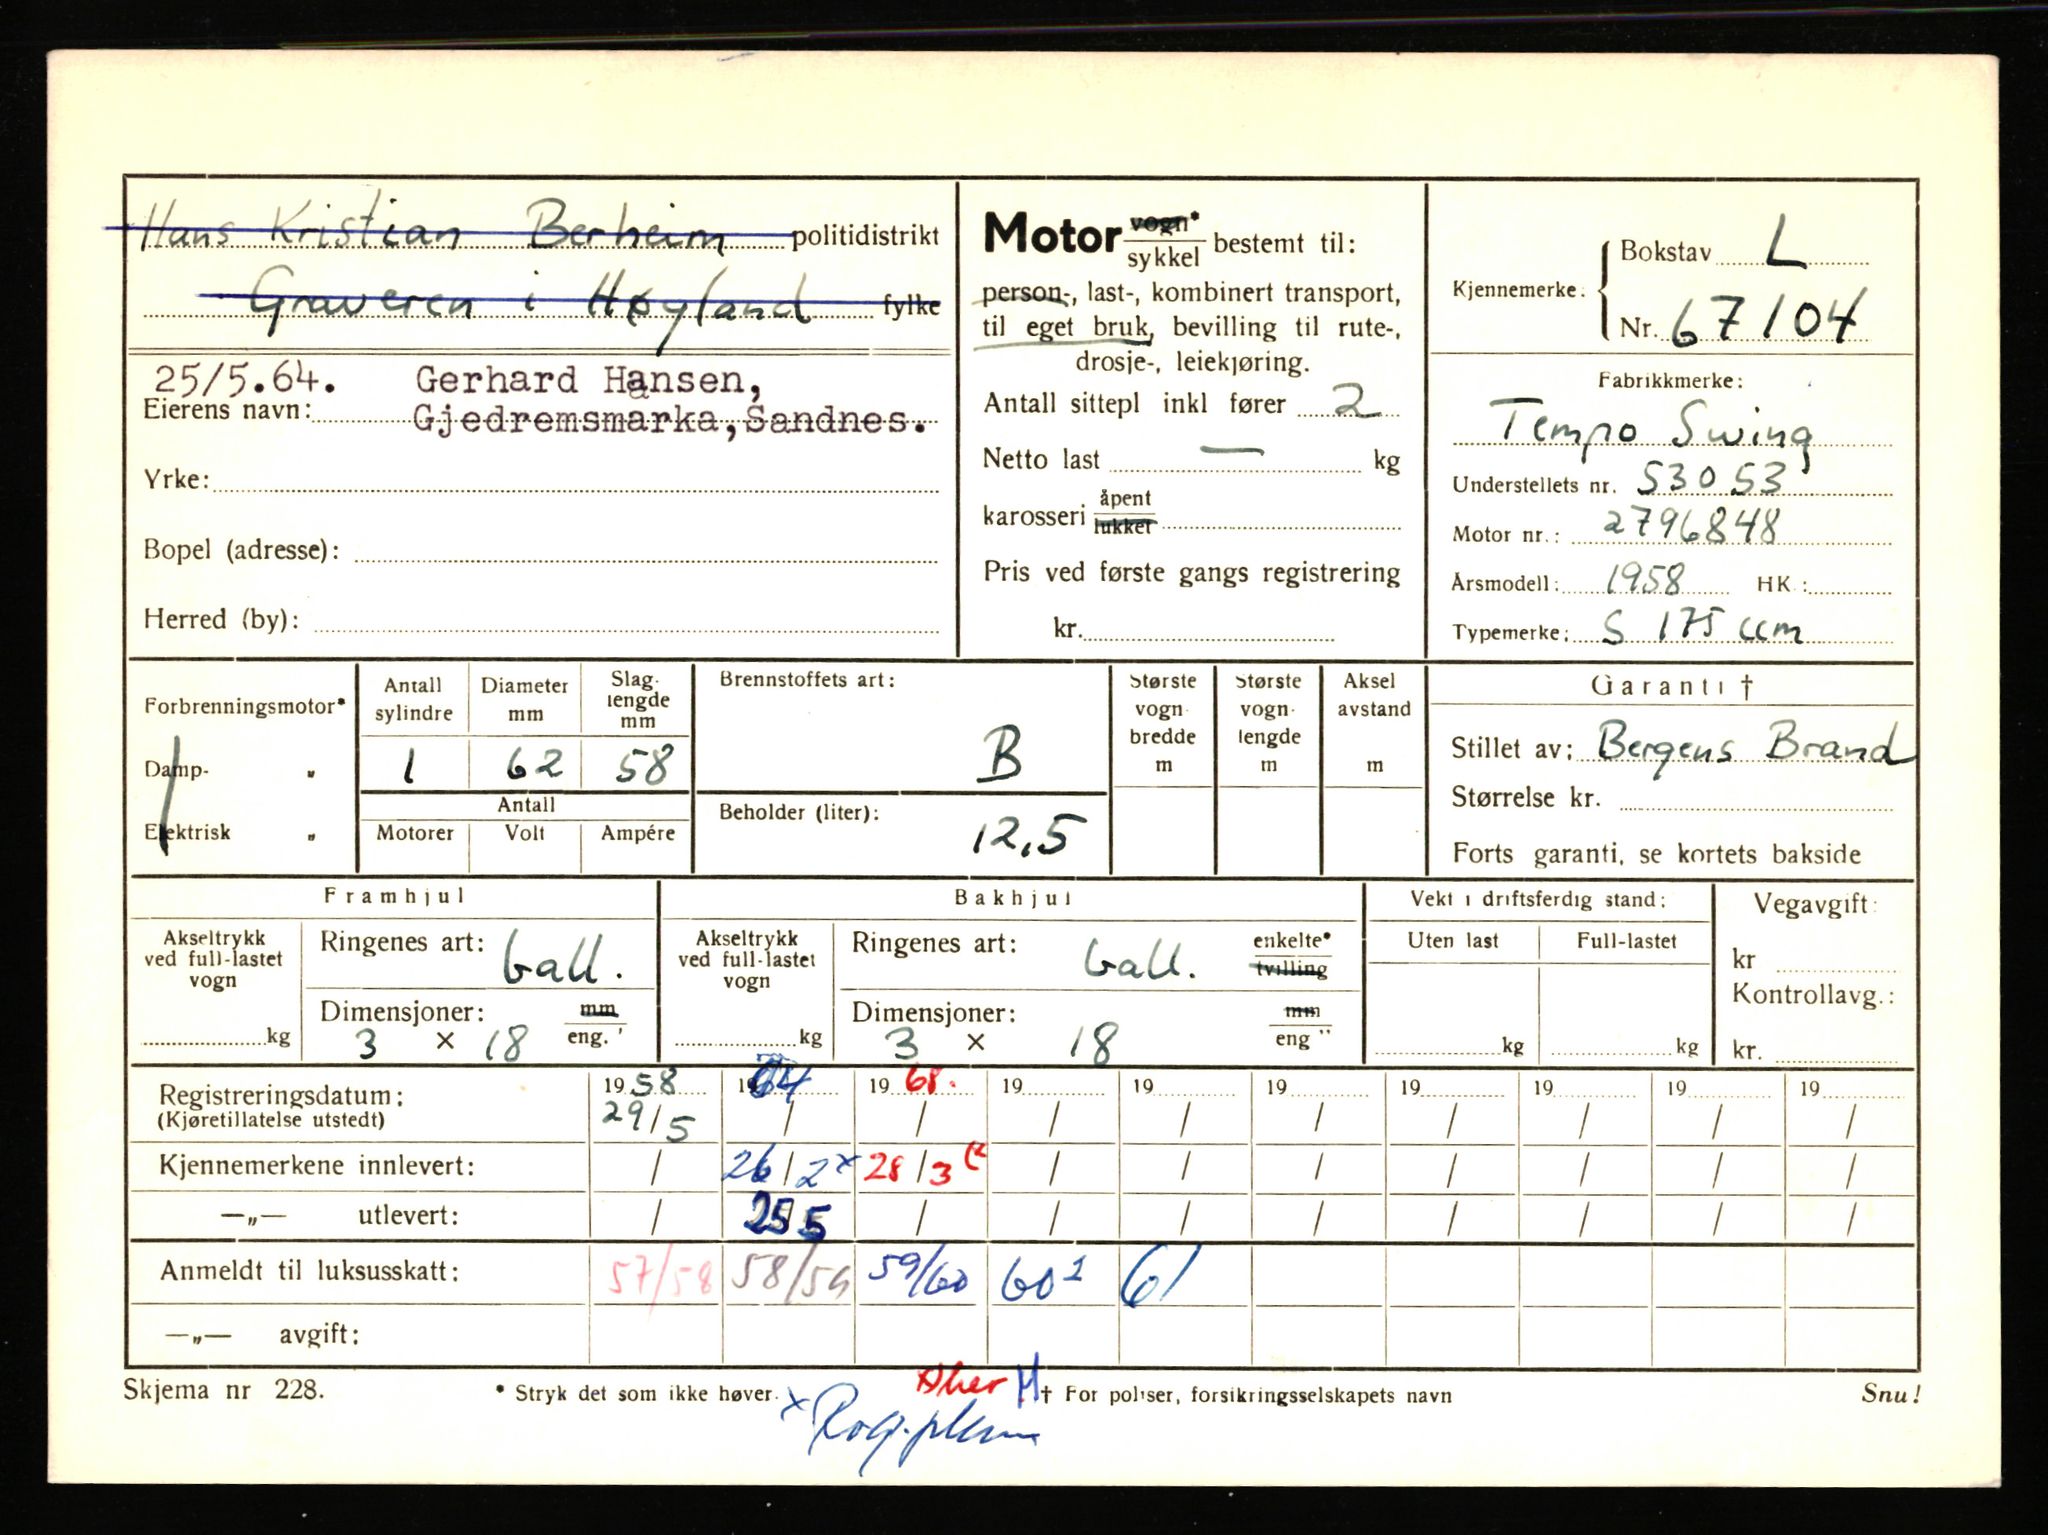 Hans Kristian Berheim politidistrikt
Graveren i Høyland fylke
25/5.64. Gerhard Hansen,
Eierens navn: Gjedremsmarka, Sandnes.
Yrke:
Bopel (adresse):
Herred (by):
Motor vogn* sykkel bestemt til:
person-, last-, kombinert transport,
til eget bruk, bevilling til rute-,
drosje-, leiekjøring.
Antall sittepl inkl fører 2
Netto last — kg
karosseri åpent lukket
Pris ved første gangs registrering
kr.
Kjennemerke: Bokstav L
Nr. 67104
Fabrikkmerke:
Tempo Swing
Understellets nr. 53053
Motor nr.: 2796848
Årsmodell: 1958 HK.:
Typemerke: S 175 ccm
Forbrenningsmotor*
Damp- „
Elektrisk „
Antall sylindre Diameter mm Slaglengde mm
1 62 58
Antall
Motorer Volt Ampére
Brennstoffets art:
B
Beholder (liter):
12,5
Største vognbredde m
Største vognlengde m
Akselavstand m
Garanti †
Stillet av: Bergens Brand
Størrelse kr.
Forts garanti, se kortets bakside
Framhjul
Akseltrykk ved full-lastet vogn kg
Ringenes art: ball.
Dimensjoner: mm eng. '
3 × 18
Bakhjul
Akseltrykk ved full-lastet vogn kg
Ringenes art: ball. enkelte* tvilling
Dimensjoner: mm eng ''
3 × 18
Vekt i driftsferdig stand:
Uten last Full-lastet
kg kg
Vegavgift:
kr
Kontrollavg.:
kr.
Registreringsdatum: 1958 1964 1968. 19 19 19 19 19 19 19
(Kjøretillatelse utstedt) 29/5 / / / / / / / / /
Kjennemerkene innlevert: / 26/2 x 28/3 / / / / / / /
—„— utlevert: / 25 5 / / / / / / / /
Anmeldt til luksusskatt: 57/58 58/59 59/60 60² 61
—„— avgift:
Skjema nr 228.
* Stryk det som ikke høver.
† For poliser, forsikringsselskapets navn
Snu!